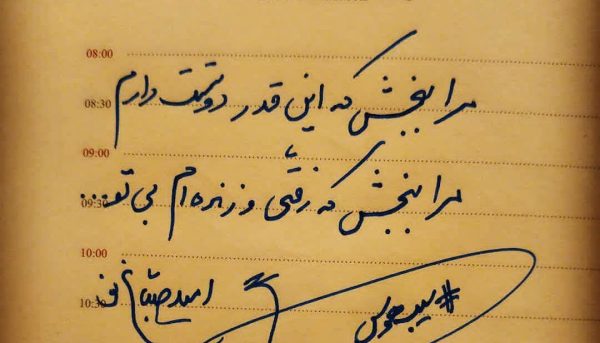 08:00
مرا ببخش که این قدر دوستت دارم
08:30
09:00
مرا ببخش که رفتی و زنده ام بی تو...
09:30
10:00
امید صباغ نو
10:30
#سیب_هوس